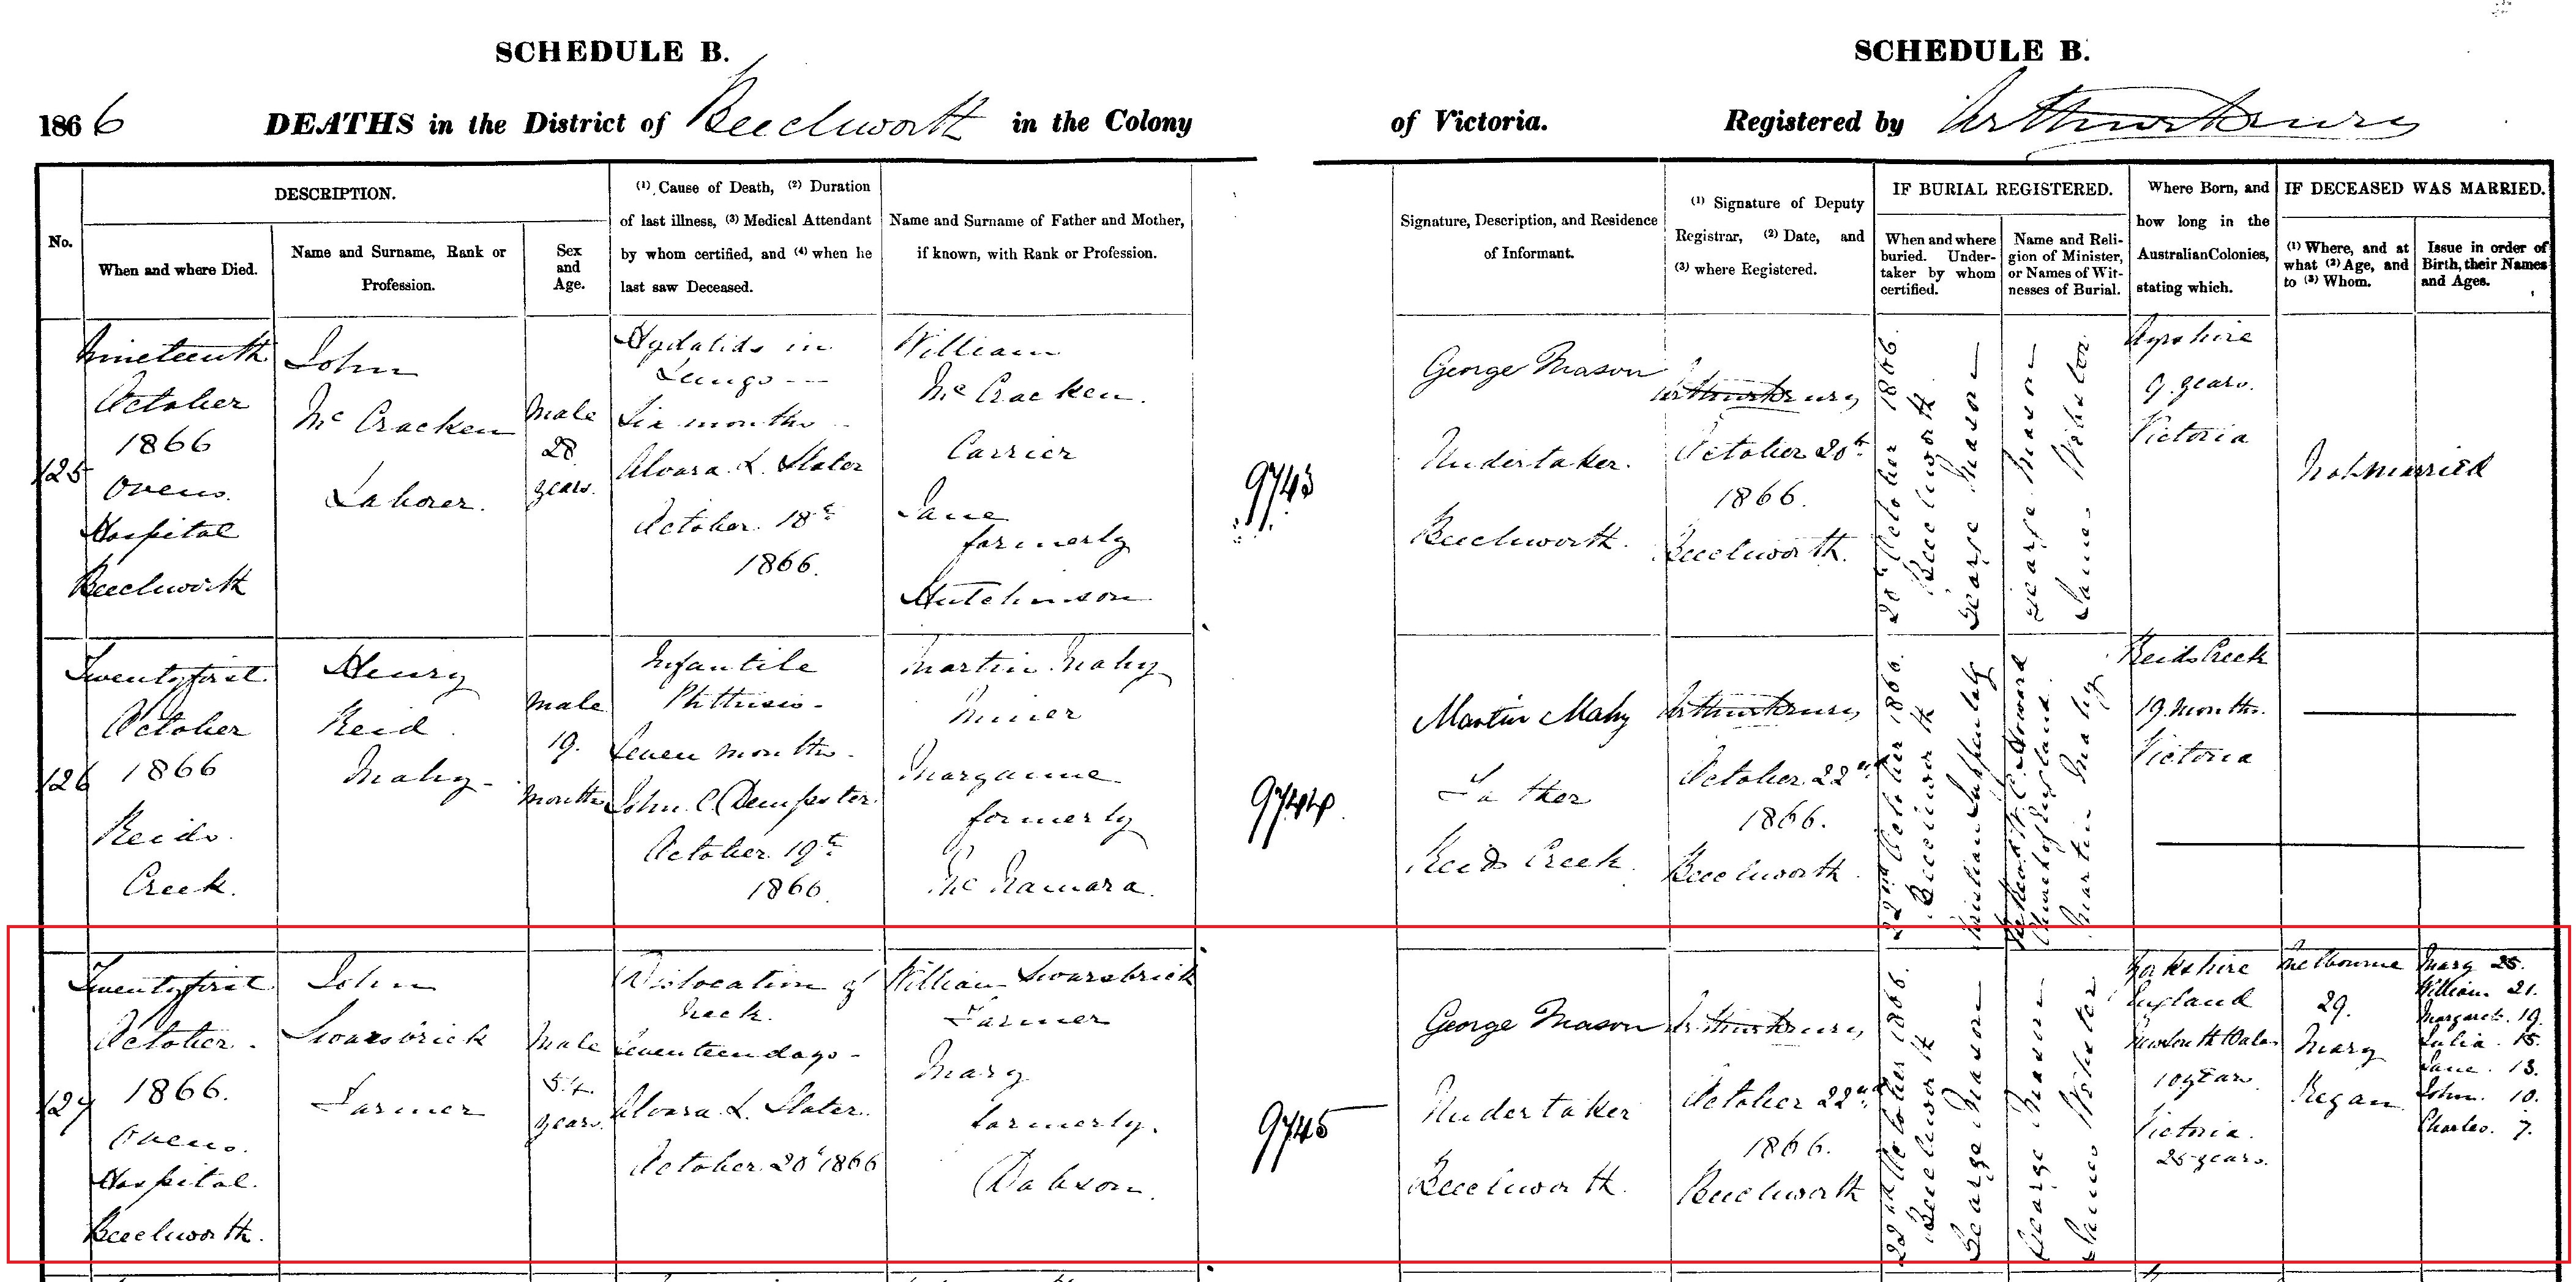 SCHEDULE B.
1866 DEATHS in the District of Beechworth in the Colony
No.
DESCRIPTION.
When and where Died.
Name and Surname, Rank or
Profession.
Sex
and
Age.
(1) Cause of Death, (2) Duration
of last illness, (3) Medical Attendant
by whom certified, and (4) when he
last saw Deceased.
Name and Surname of Father and Mother,
if known, with Rank or Profession.
SCHEDULE B.
of Victoria. Registered by
Signature, Description, and Residence
of Informant.
(1) Signature of Deputy
Registrar, (2) Date, and
(3) where Registered.
IF BURIAL REGISTERED.
When and where
buried. Under-
taker by whom
certified.
Name and Reli-
gion of Minister,
or Names of Wit-
nesses of Burial.
Where Born, and
how long in the
Australian Colonies,
stating which.
IF DECEASED WAS MARRIED.
(1) Where, and at
what (2) Age, and
to (3) Whom.
Issue in order of
Birth, their Names
and Ages.
125
Nineteenth
October
1866
Ovens
Hospital
Beechworth
John
McCracken
Laborer.
Male
28
years.
Hydatids in
Lungs
Six months
Alvara L. Slater
October 18th
1866.
William
McCracken.
Carrier
Jane
formerly
Hutchinson
9743
George Mason
Undertaker.
Beechworth.
October 20th
1866.
Beechworth.
20th October 1866.
Beechworth
George Mason
George Mason
James Webster
Ayrshire
9 years.
Victoria
Not Married
126
Twentyfirst
October
1866
Reids
Creek.
Henry
Reid
Mahy
Male
19.
Months
Infantile
Phthisis
Seven months
John C Dempster.
October 19th
1866
Martin Mahy
Miner
Margaume
formerly
McNamara.
9744
Martin Mahy
Father
Reids Creek.
October 22nd
1866.
Beechworth
22nd October 1866.
Beechworth
Howard
Church of England.
Martin Mahy
Reids Creek
19 Months.
Victoria
127
Twentyfirst
October
1866.
Ovens
Hospital.
Beechworth.
John
Swarsbrick
Farmer
Male
54
years.
Dislocation of
Neck.
Seventeen days
Alvara L. Slater.
October 20th 1866
William Swarsbrick
Farmer
Mary
formerly.
Dobson.
9745
George Mason
Undertaker
Beechworth.
October 22nd
1866.
Beechworth
22nd October 1866.
Beechworth
George Mason
George Mason
James Webster
Yorkshire
England
New South Wales
10 years
Victoria.
25 years.
Melbourne
29.
Mary
Regan
Mary 25.
William. 21.
Margaret. 19.
Julia. 15.
Jane. 13.
John. 10.
Charles. 7.